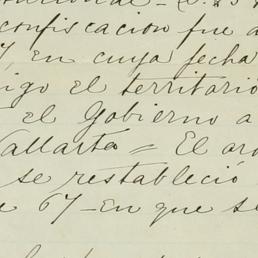 confiscacion fue a
7 en cuya fecha
igo el territorio
el Gobierno a
Vallarta = El
se restableció
67 - En que se